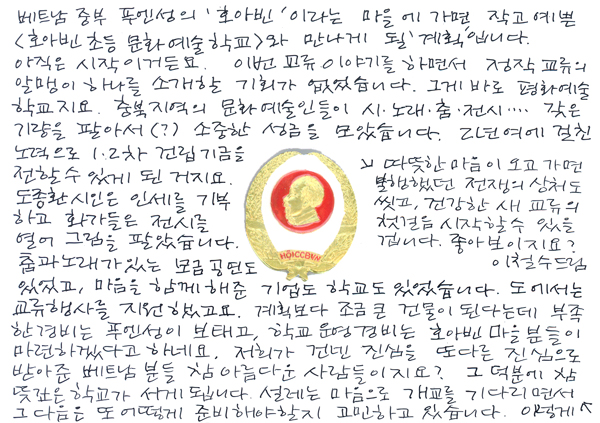 베트남 중부 푸엔성의 '호아빈'이라는 마을에 가면 작고 예쁜
<호아빈 초등 문화예술학교>와 만나게 될 '계획'입니다.
아직은 시작이거든요. 이번 교류 이야기를 하면서 정작 교류의
알맹이 하나를 소개할 기회가 없었습니다. 그게 바로 평화예술
학교지요. 충북지역의 문화예술인들이 시·노래·춤·전시···· 갖은
기량을 팔아서(?) 소중한 성금을 모았습니다. 2년여에 걸친
노력으로 1·2차 건립기금을
전할 수 있게 된 거지요.
도종환 시인은 인세를 기부
하고 화가들은 전시를
열어 그림을 팔았습니다.
춤과 노래가 있는 모금공연도
있었고, 마음을 함께 해준 기업도 학교도 있었습니다. 도에서는
교류행사를 지원했고요. 계획보다 조금 큰 건물이 된다는데 부족
한 경비는 푸엔성이 보태고, 학교 운영경비는 호아빈 마을분들이
마련하겠다고 하네요. 저희가 건넨 진심을 또다른 진심으로
받아준 베트남 분들 참 아름다운 사람들이지요? 그 덕분에 참
뜻깊은 학교가 서게 됩니다. 설레는 마음으로 개교를 기다리면서
그 다음은 또 어떻게 준비해야 할지 고민하고 있습니다. 이렇게
따뜻한 마음이 오고 가면
불행했던 전쟁의 상처도
씻고, 건강한 새 교류의
첫걸음 시작할 수 있을
겁니다. 좋아보이지요?
이철수 드림
HỘICCBVN